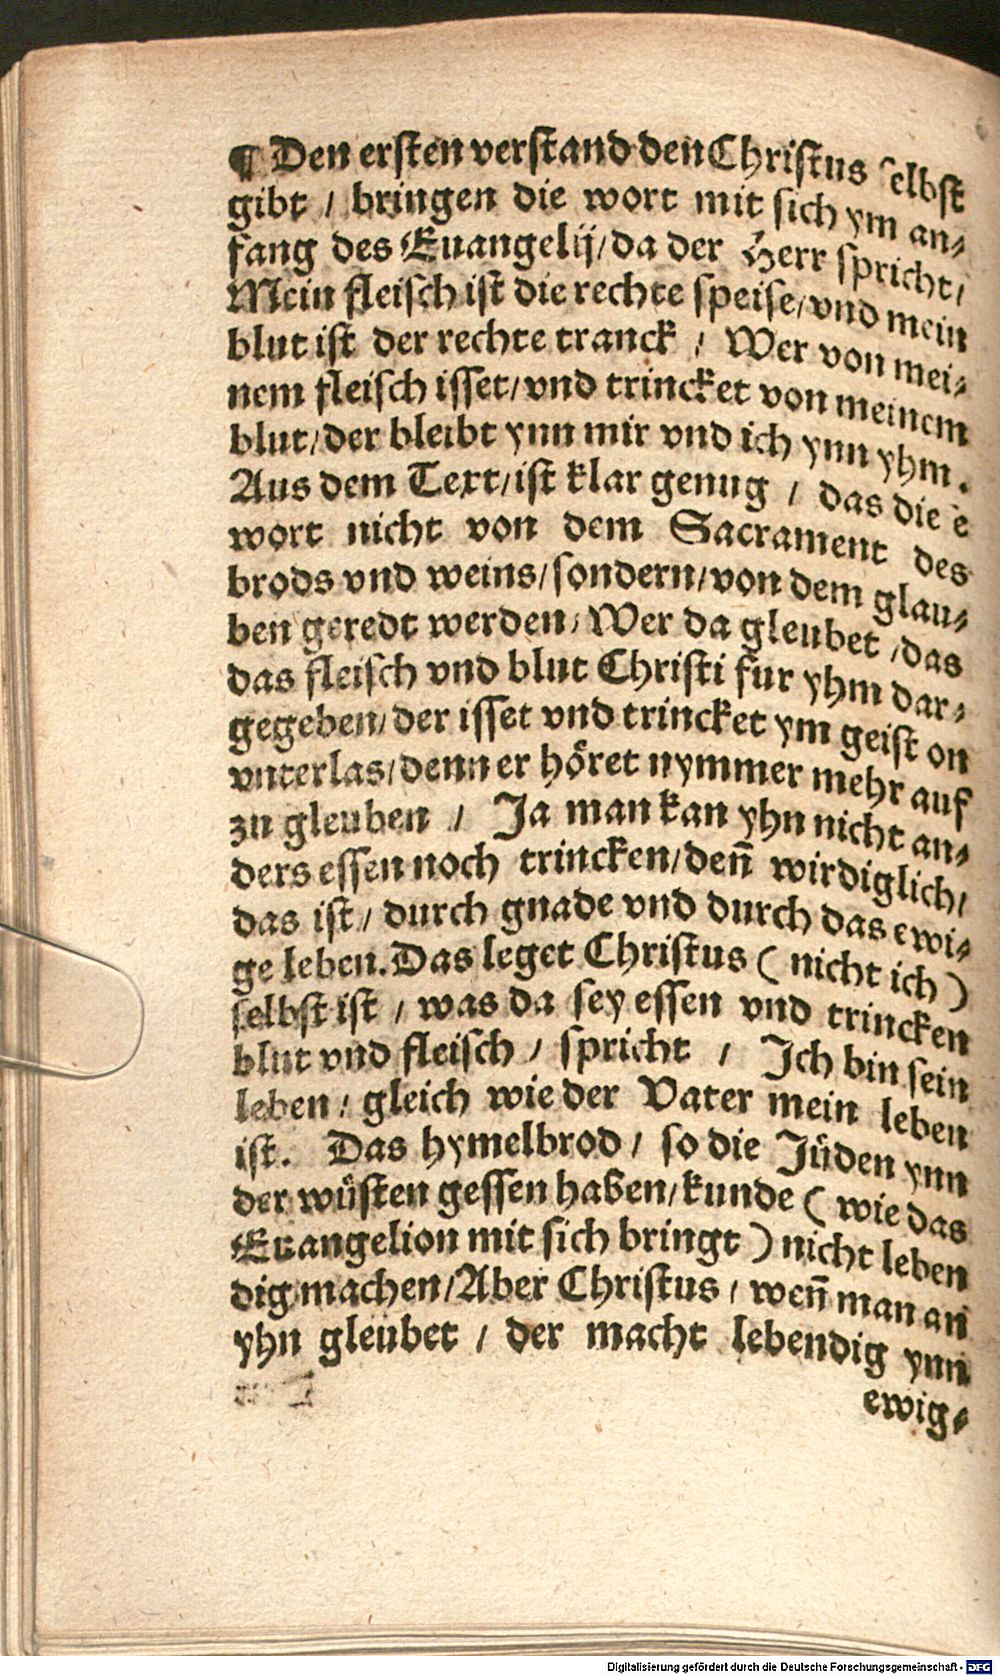 ¶ Den ersten verstand den Christus selbst
gibt / bringen die wort mit sich ym an⸗
fang des Euangelij / da der Herr spricht /
Mein fleisch ist die rechte speise / vnd mein
blut ist der rechte tranck / Wer von mei⸗
nem fleisch isset / vnd trincket von meinem
blut / der bleibt ynn mir vnd ich ynn yhm.
Aus dem Text / ist klar genug / das die e
wort nicht von dem Sacrament des
brods vnd weins / sondern / von dem glau⸗
ben geredt werden / Wer da gleubet / das
das fleisch vnd blut Christi fur yhm dar⸗
gegeben / der isset vnd trincket ym geist on
vnterlas / denn er höret nymmer mehr auf
zu gleuben / Ja man kan yhn nicht an⸗
ders essen noch trincken / deñ wirdiglich /
das ist / durch gnade vnd durch das ewi⸗
ge leben. Das leget Christus ( nicht ich )
selbst ist / was da sey essen vnd trincken
blut vnd fleisch / spricht / Ich bin sein
leben / gleich wie der Vater mein leben
ist. Das hymelbrod / so die Jüden ynn
der wüsten gessen haben / kunde ( wie das
Euangelion mit sich bringt ) nicht leben
dig machen / Aber Christus / weñ man an
yhn gleubet / der macht lebendig ynn
ewig⸗
Digitalisierung gefördert durch die Deutsche Forschungsgemeinschaft - DFG